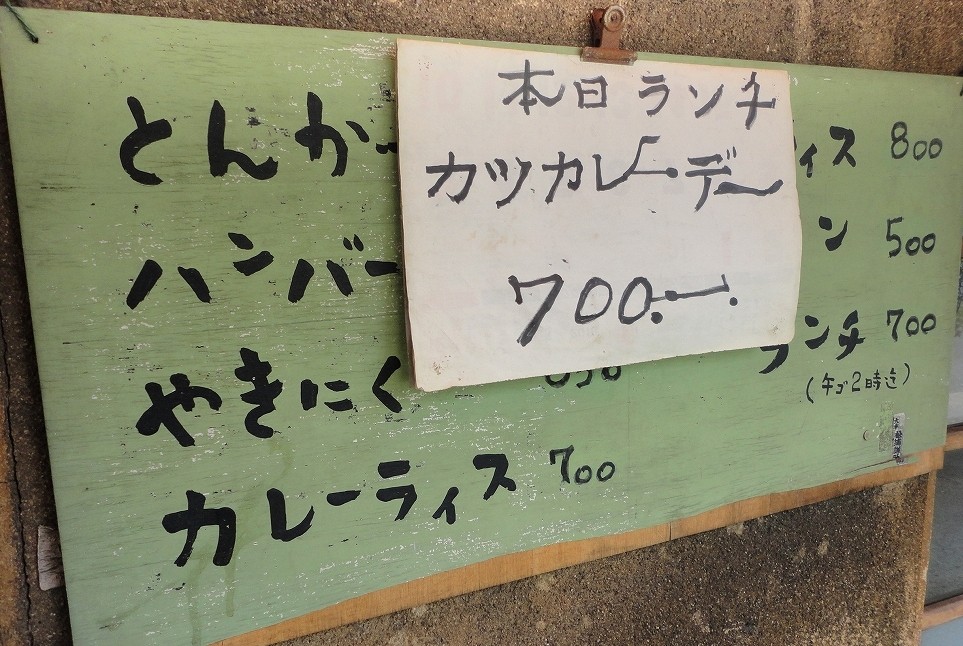 本日ランチ
カツカレーデー
700.—.
とんか
ハンバー
やきにく
カレーライス 700
ィス 800
ン 500
ランチ 700
(午ゴ2時迄)